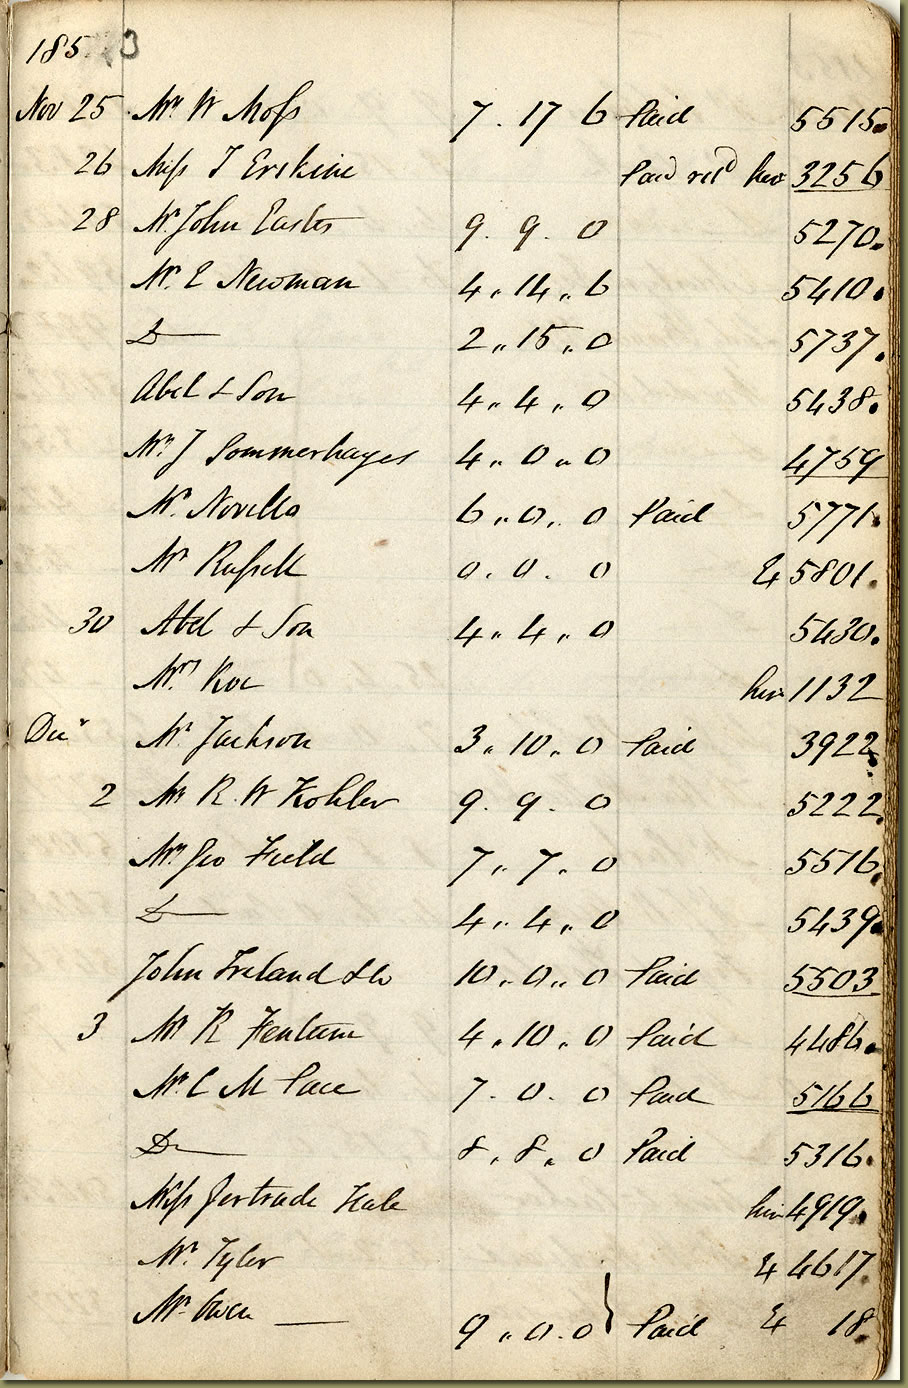 185 3
Nov 25 Mr W Moſs 7 . 17 6 Paid 5515
26 Miſs T Erskine Paid recd her 3256
28 Mr John Easter 9 . 9 . 0 5270.
Mr E Newman 4 „ 14 „ 6 5410.
Do 2 „ 15 „ 0 5737.
Abel & Son 4 „ 4 „ 0 5438.
Mr J Sommerhayes 4 „ 0 „ 0 4759
Mr Novello 6 „ 0 „ 0 Paid 5771.
Mr Ruſsell 0 . 0 . 0 5801.
30 Abel & Son 4 „ 4 „ 0 5430.
Mr Roe her 1132
Decr Mr Jackson 3 „ 10 „ 0 Paid 3922
2 Mr R. W Kohler 9 . 9 . 0 5222.
Mr Geo Field 7 „ 7 „ 0 5516
Do 4 „ 4 „ 0 5439.
John Ireland & Co 10 „ 0 „ 0 Paid 5503
3 Mr R Fentum 4 „ 10 „ 0 Paid 4484.
Mr C M Pace 7 . 0 . 0 Paid 5166
Do 8 „ 8 „ 0 Paid 5316.
Miſs Gertrude Hale her 4919.
Mr Tyler 4617
Mr Owen 9 „ 0 . 0 } Paid 18